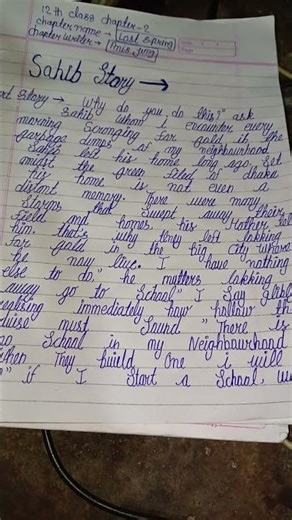 12th class chapter - 2
chapter name → Last Spring
chapter writer → Anis Jung
Sahib Story →
Story → Why do you do this?" ask
Sahib whom I encounter every
morning Scronging for gold in the
garbage dumps of my neighbourhood
Sahib left his home long ago. Set
amidst the green filed of dhaka
his home is not even a
distont memory. There were many
Storms that Swept away their
field and homes, his Mother
him. that's why they left lokking
for gold in the big city where
he now live. I have nothing
else to do," he matters lokking
away go to School" I Say glibly
realising immediately how hollow th
must Sound "There is
no School in my Neighbourhood
when They build One i will
" if I Start a School,